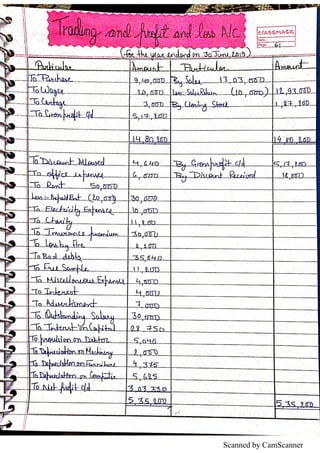 Trading and profit and loss A/C
CLASSMATE
Date
Page 61
(For the year ended on 30 June, 2019)
Particular Amount Particular Amount
To Purchase 9,40,000 By Sales 13,03,000
To Wages 20,000 Less: Sales Return (10,000) 12,93,000
To Cartage 3,000 By Closing Stock 1,87,200
To Gross profit c/d 5,17,200
14,80,200 14,80,200
To Discount Allowed 4,640 By Gross profit c/d 5,17,200
To office expenses 6,000 By Discount Received 18,000
To Rent 50,000
Less:- Prepaid Rent (20,000) 30,000
To Electricity Expenses 10,000
To Charity 11,200
To Insurance premium 30,000
To Loss by Fire 2,200
To Bad debts 35,840
To Free Sample 11,200
To Miscellaneous Expense 4,500
To Interest 4,000
To Advertisment 7,000
To Outstanding Salary 30,000
To Interest on Capital 28,750
To provision on Debtor 5,040
To Depreciation on Machinery 2,000
To Depreciation on Furniture 4,375
To Depreciation on Computer 5,625
To Net profit c/d 3,03,330
5,35,200 5,35,200
Scanned by CamScanner